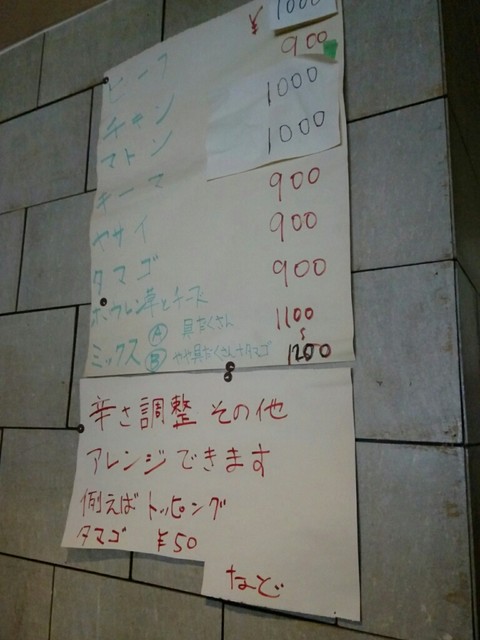 ビーフ ¥1000
チキン 900
マトン 1000
キーマ 1000
ヤサイ 900
タマゴ 900
ホウレン草とチーズ 900
ミックス Ⓐ 具だくさん 1100
Ⓑ やや具だくさん+タマゴ 〜1200
辛さ調整 その他
アレンジできます
例えば トッピング
タマゴ ¥50
など